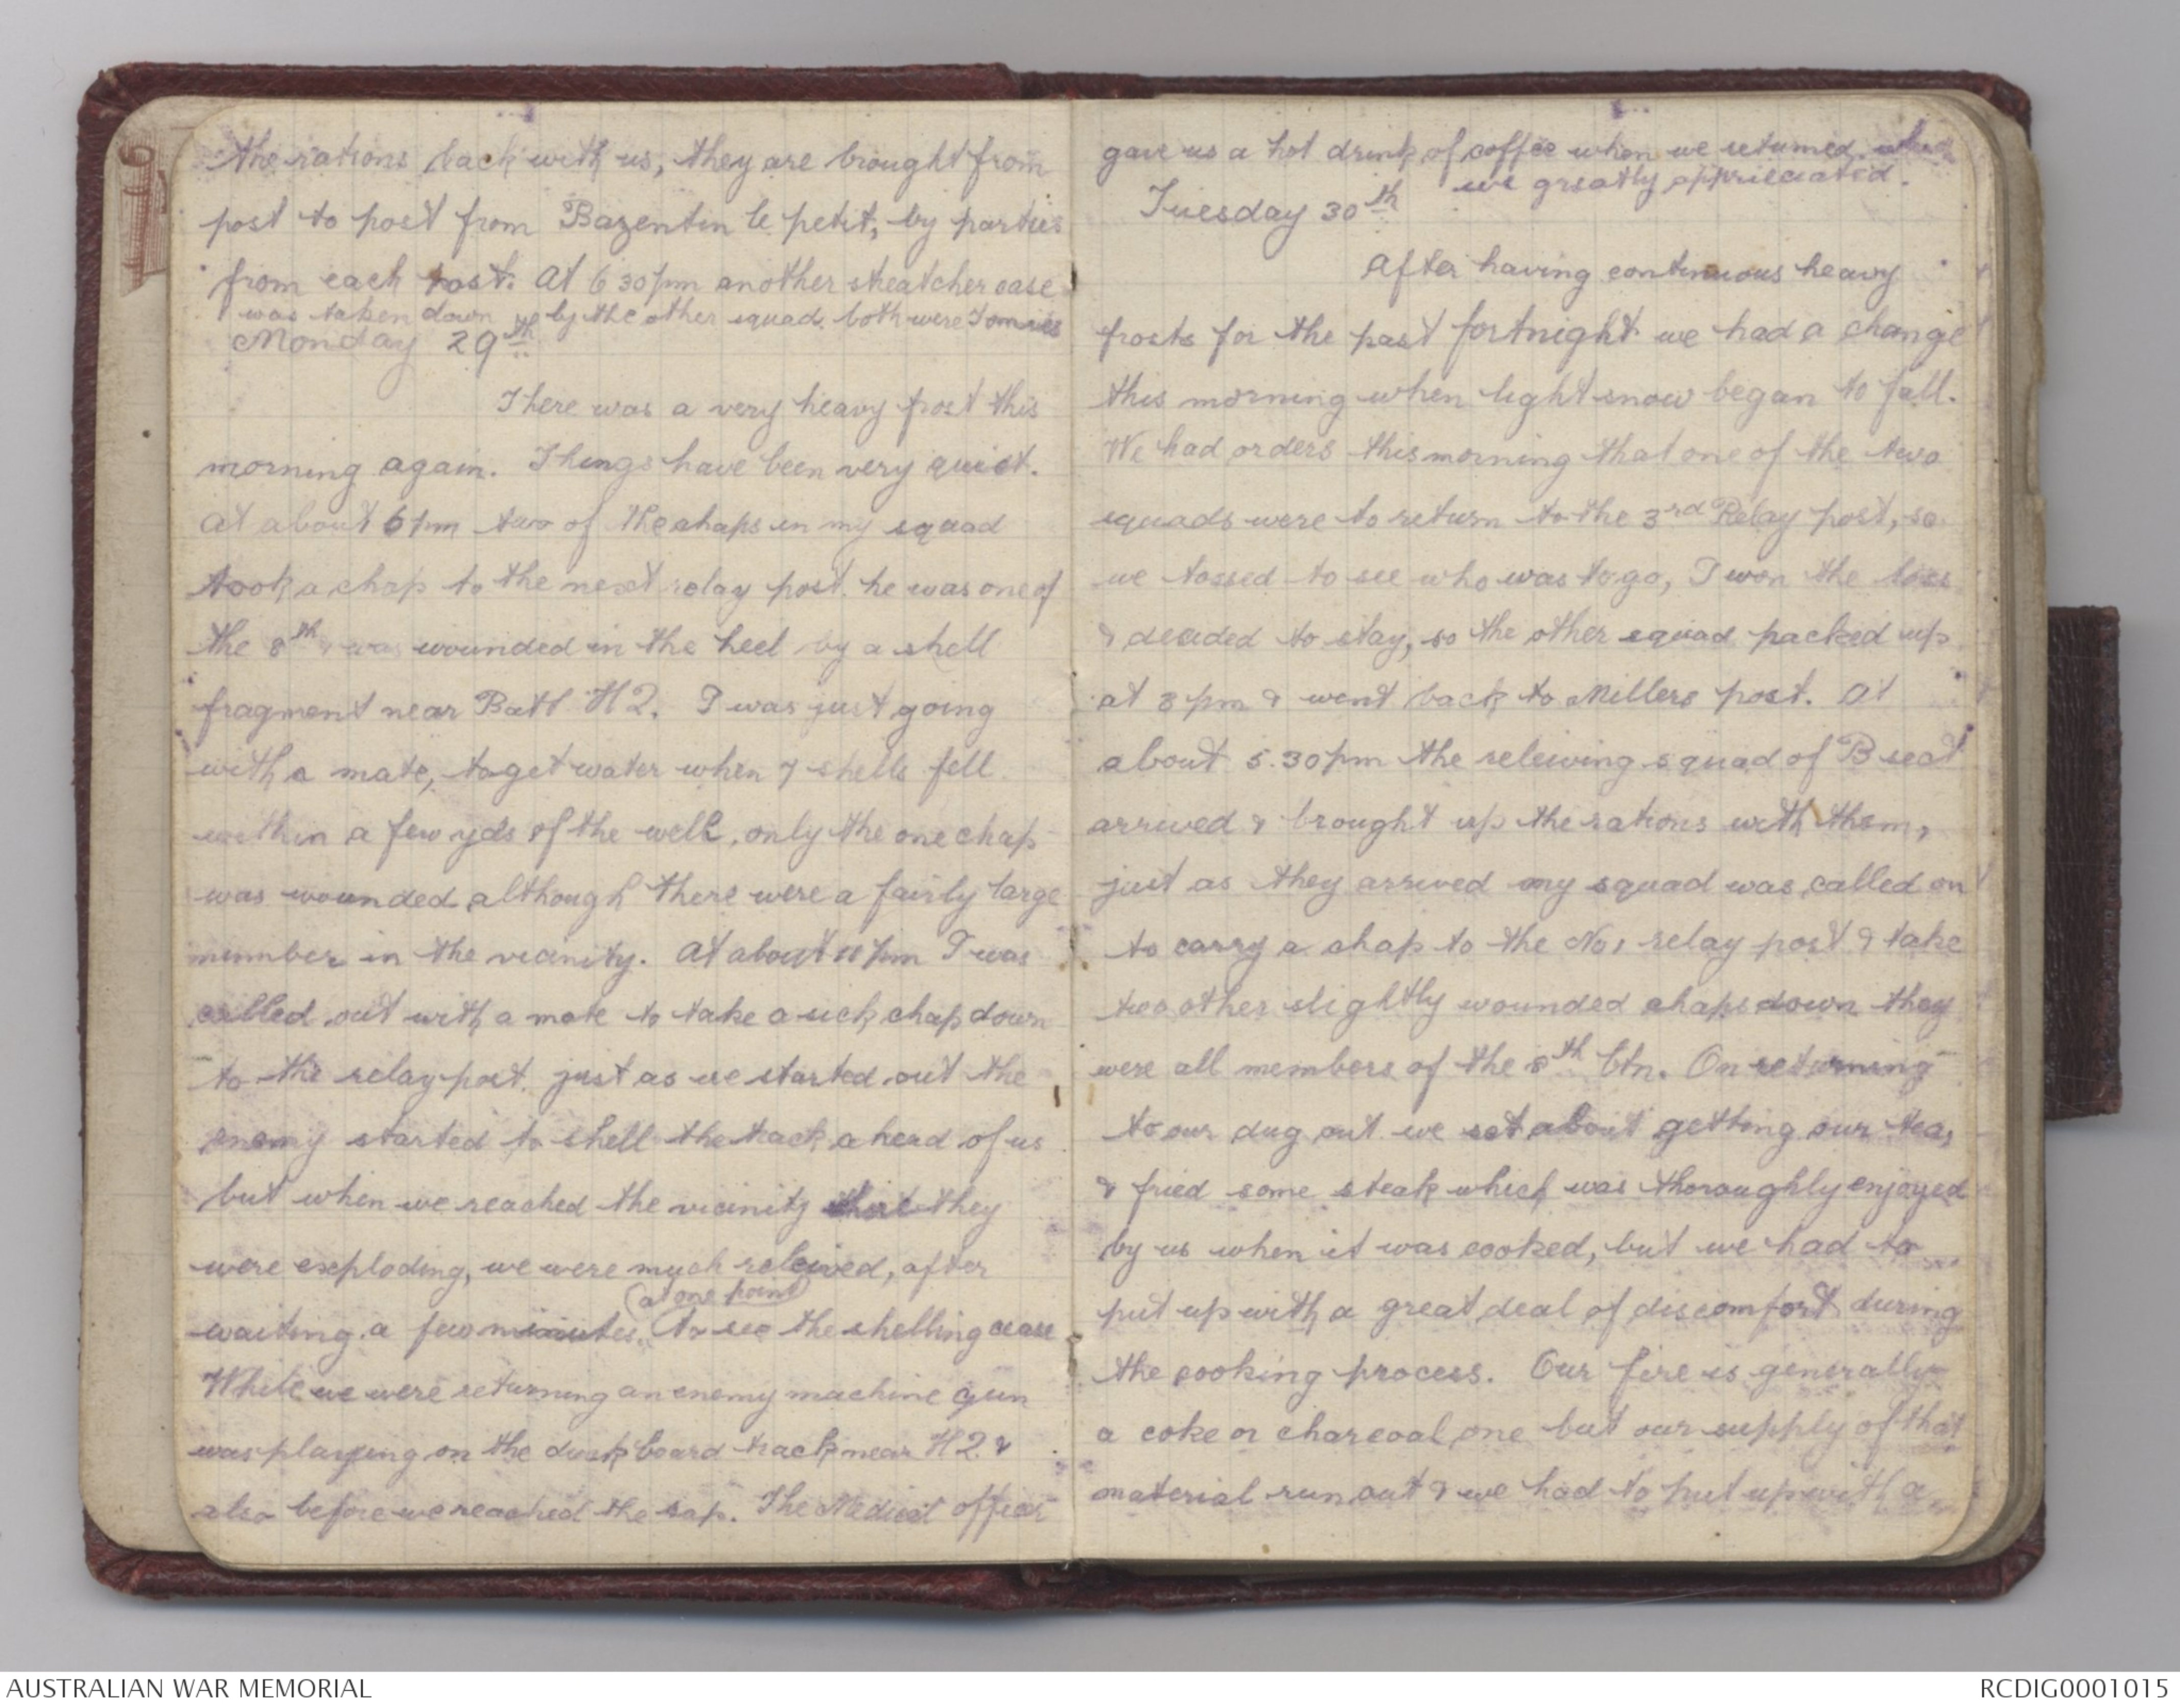 the rations back with us, they are brought from
post to post from Bazentin le petit, by parties
from each post. At 6 30 pm another streatcher case
was taken down by the other squad. both were Tommies
Monday 29th
There was a very heavy frost this
morning again. Things have been very quiet.
At about 6 pm two of the chaps in my squad
took a chap to the next relay post. he was one of
the 8th & was wounded in the heel by a shell
fragment near Batt H2. I was just going
with a mate, to get water when 7 shells fell
within a few yds of the well, only the one chap
was wounded although there were a fairly large
number in the vicinity. At about 11 pm I was
called out with a mate to take a sick chap down
to the relay post. just as we started out the
enemy started to shell the track ahead of us
but when we reached the vicinity they
were exploding, we were much releived, after
(at one point)
waiting a few minutes, to see the shelling cease
While we were returning an enemy machine gun
was playing on the duck board track near H2. &
also before we reached the sap. The Medical officer
gave us a hot drink of coffee when we returned which
we greatly appreciated.
Tuesday 30th
After having continuous heavy
frosts for the past fortnight we had a change
this morning when light snow began to fall.
We had orders this morning that one of the two
squads were to return to the 3rd Relay post, so
we tossed to see who was to go, I won the toss
& decided to stay, so the other squad packed up
at 3 pm & went back to Millers post. At
about 5.30 pm the releiving squad of B sect
arrived & brought up the rations with them,
just as they arrived my squad was called on
to carry a chap to the No 1 relay post & take
two other slightly wounded chaps down they
were all members of the 8th btn. On returning
to our dug out we set about getting our tea,
& fried some steak which was thoroughly enjoyed
by us when it was cooked, but we had to
put up with a great deal of discomfort during
the cooking process. Our fire is generally
a coke or charcoal one but our supply of that
material run out & we had to put up with a
AUSTRALIAN WAR MEMORIAL
RCDIG0001015